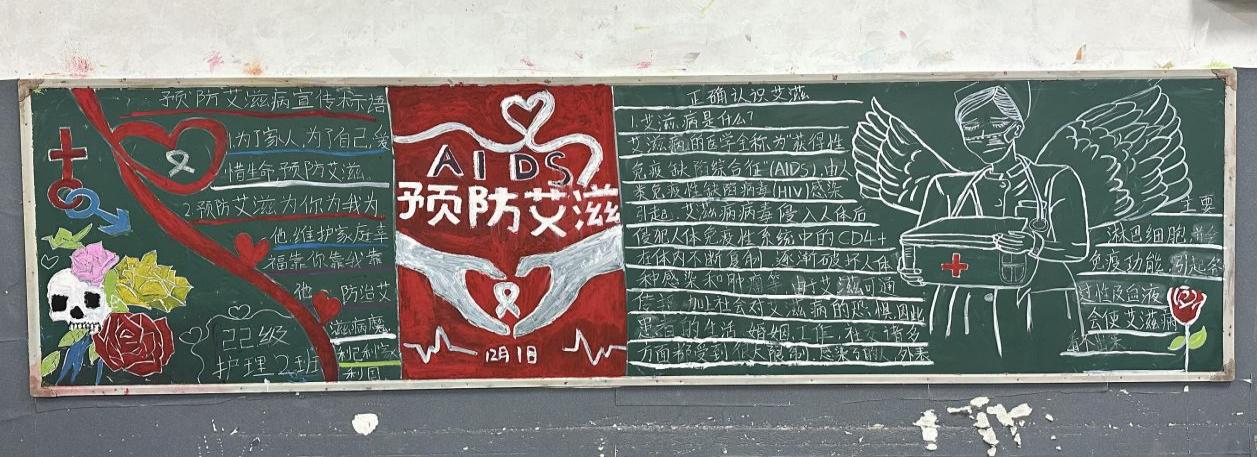 预防艾滋病宣传标语
1.为了家人,为了自己,爱
惜生命预防艾滋。
2.预防艾滋为你为我为
他维护家庭幸
福靠你靠我靠
他 防治艾
滋病魔
利己利民
利国
22级
护理2班
AIDS
预防艾滋
12月1日
正确认识艾滋
1.艾滋病是什么?
艾滋病的医学全称为"获得性
免疫缺陷综合征"(AIDS),由人
类免疫性缺陷病毒(HIV)感染
引起。艾滋病病毒侵入人体后
侵犯人体免疫性系统中的CD4+
主要
淋巴细胞,并会
在体内不断复制,逐渐破坏人体
免疫功能,引起各
种感染和肿瘤等,由于艾滋可通
过性及血液
传播,加上社会对艾滋病的恐惧因此
会使艾滋病
患者的生活、婚姻、工作、社交诸多
方面都受到很大限制,感染的